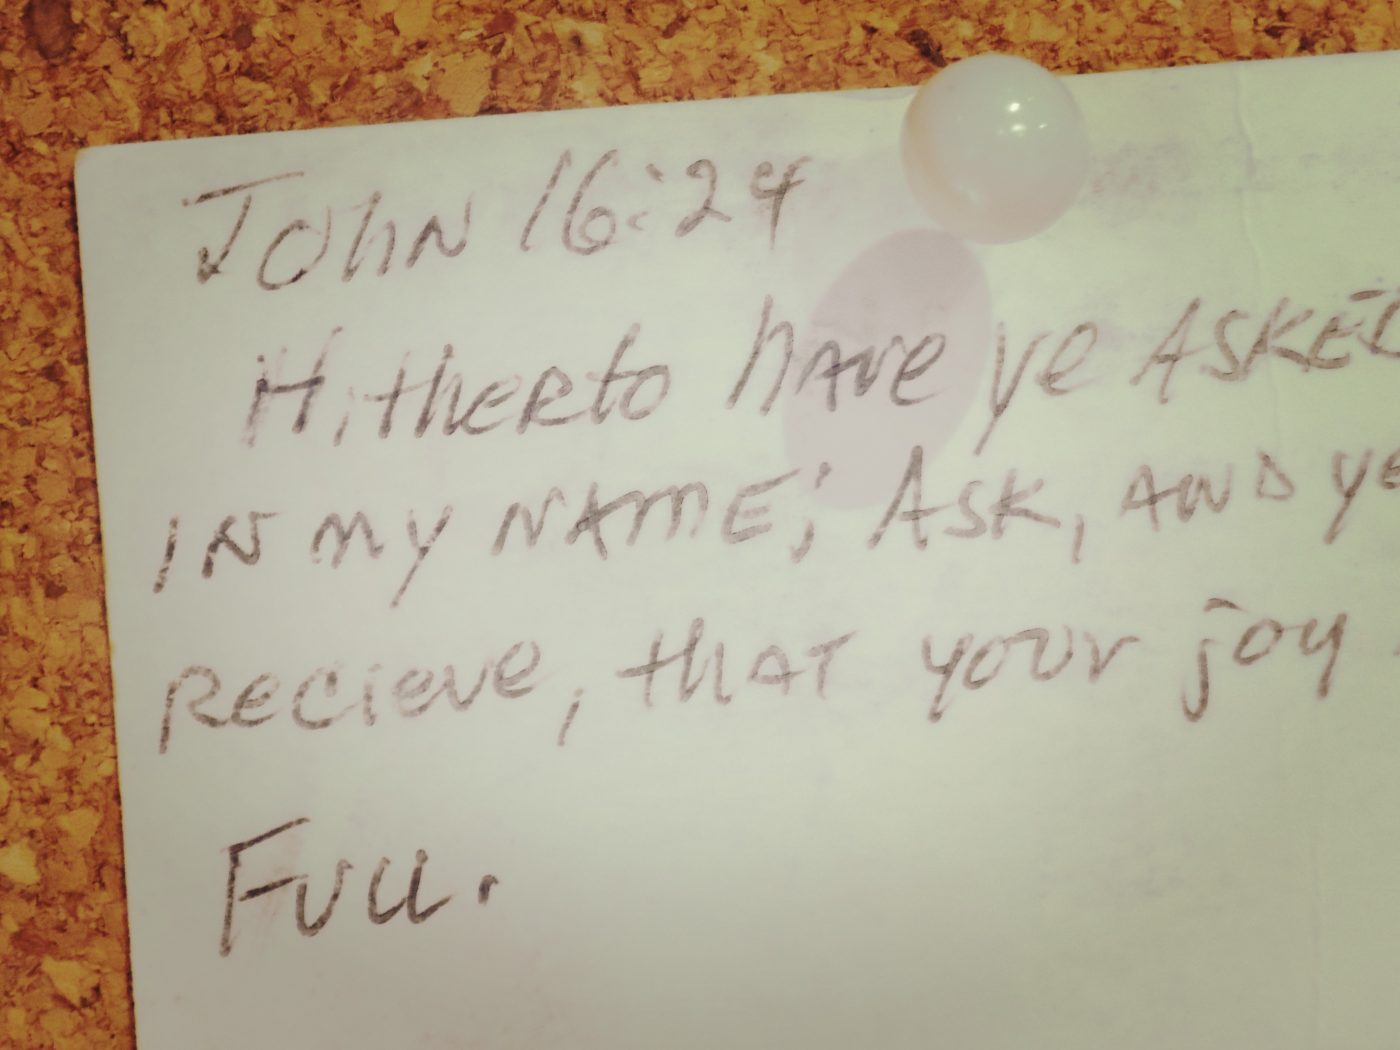 John 16:24
Hitherto have ye ASKED
IN my NAME; ASK, AND ye
Recieve, that your joy
Full.